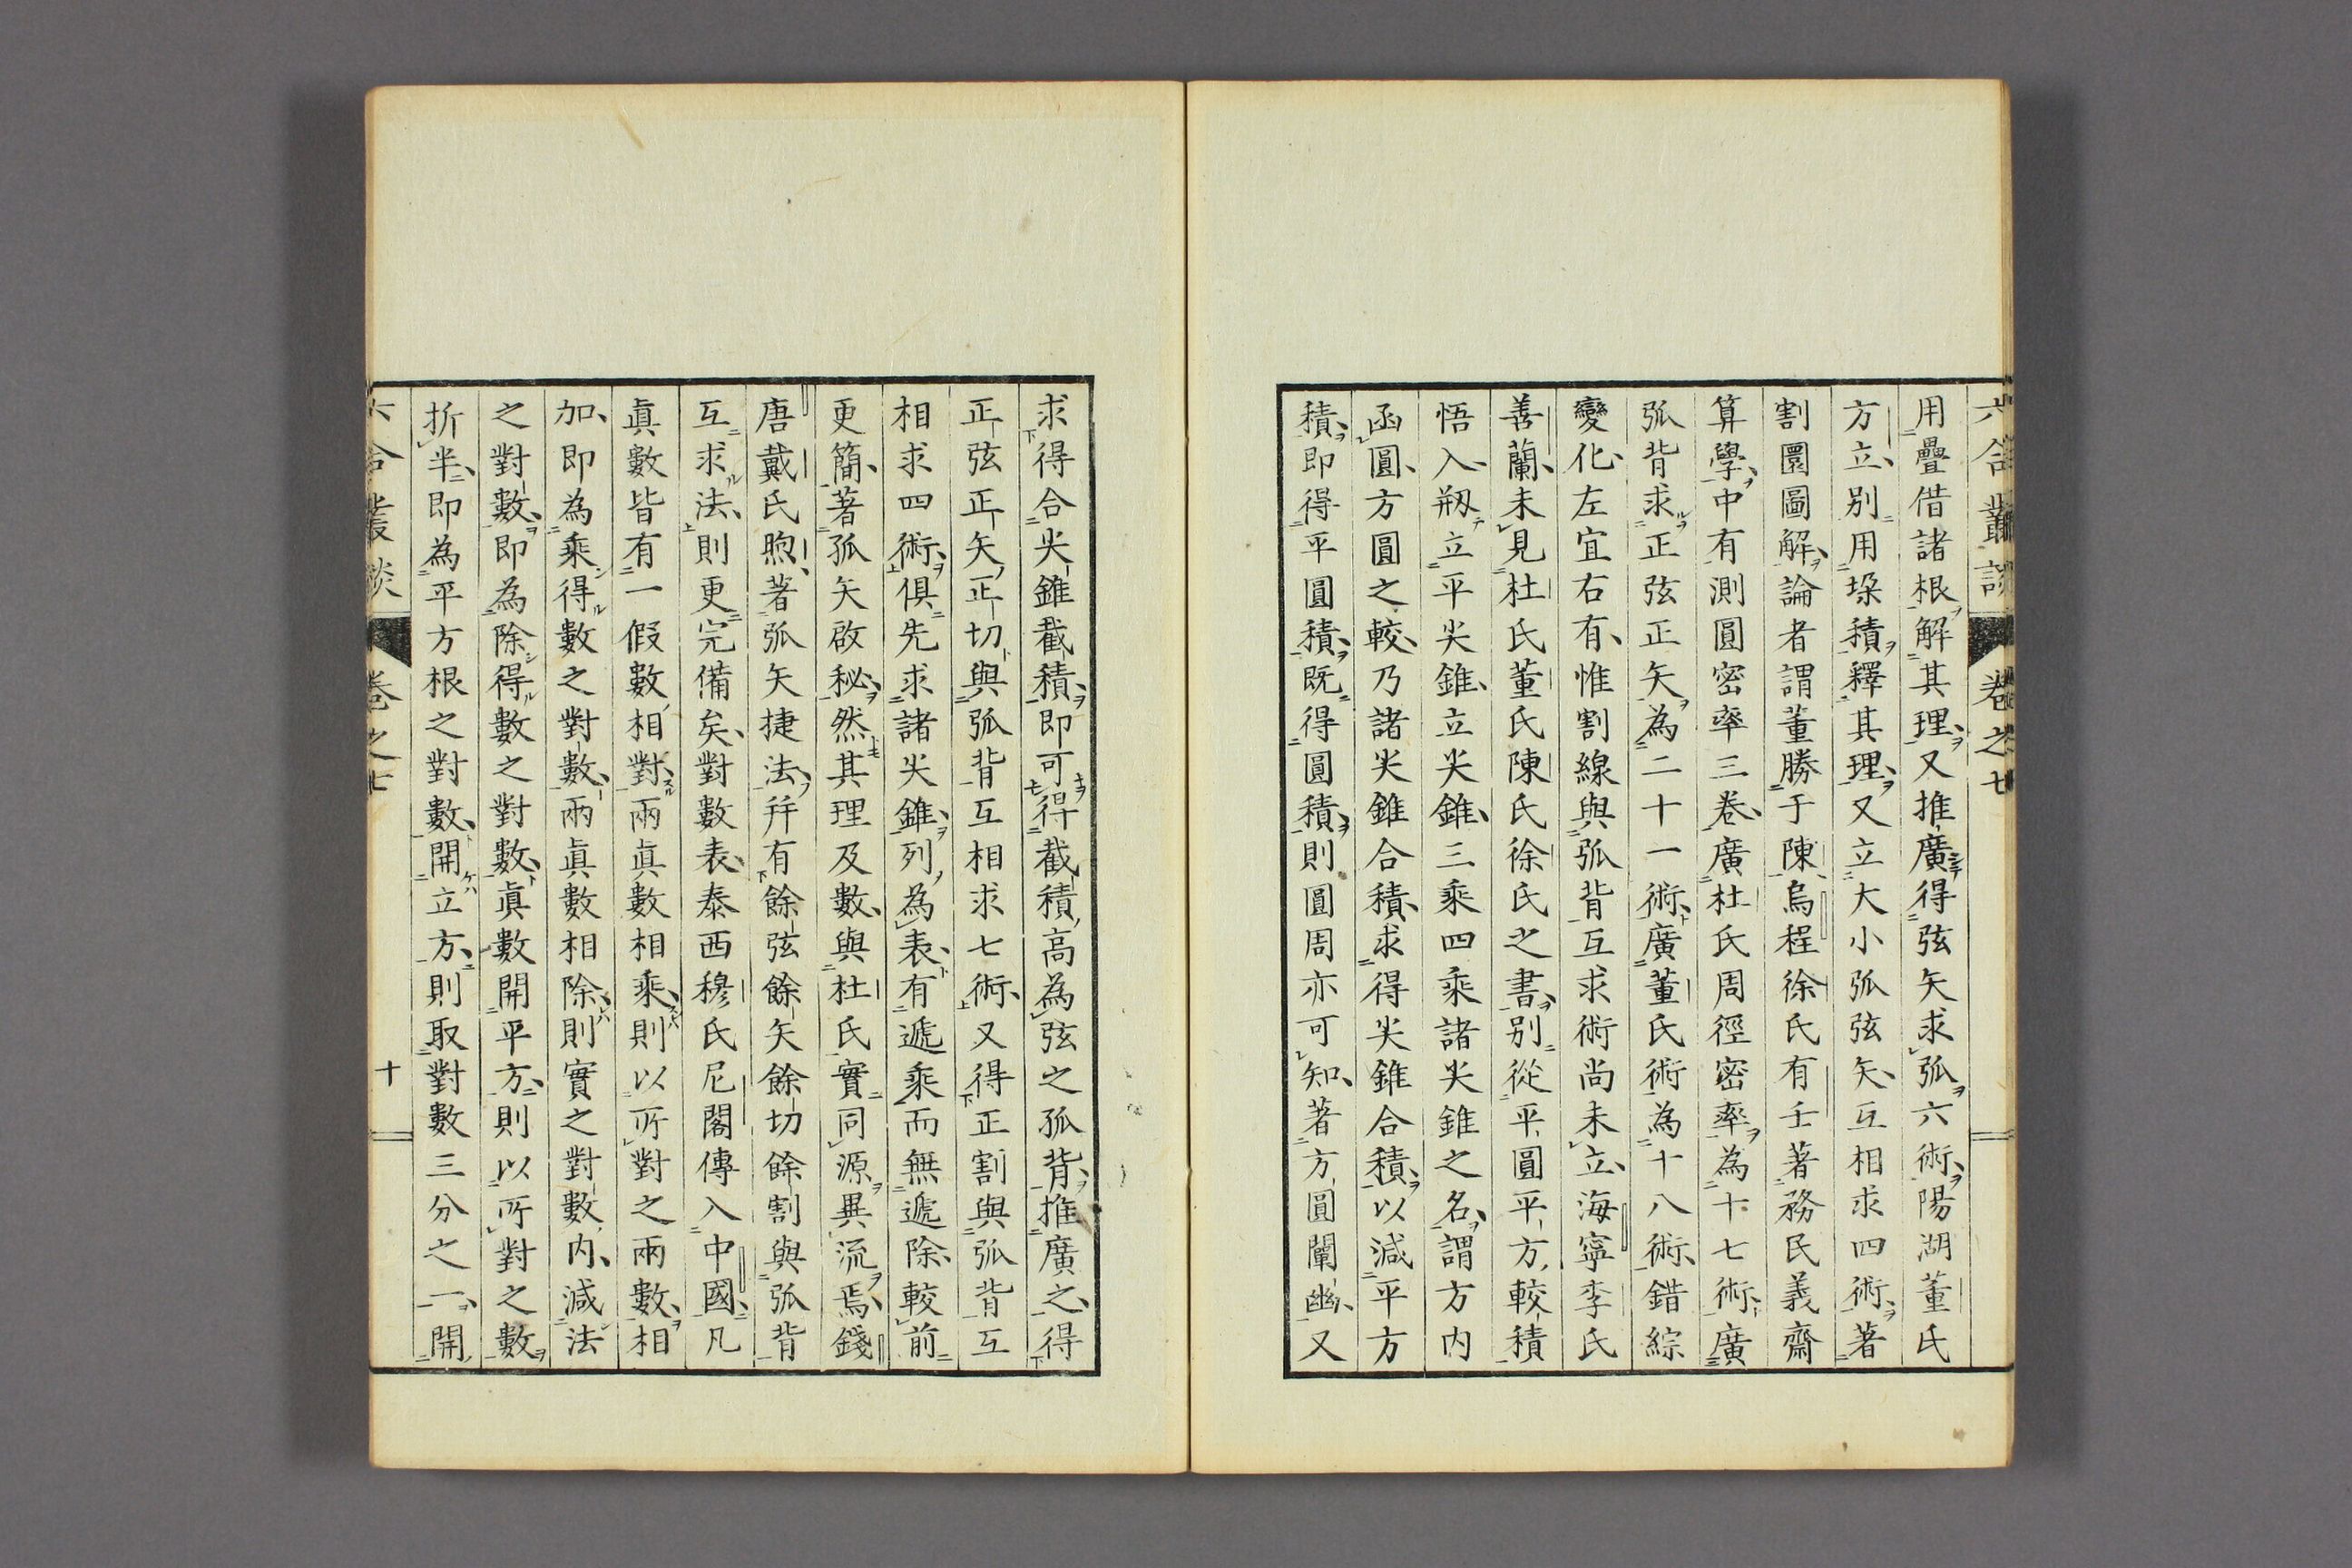 六合叢談 卷之七
用疊借諸根解其理又推廣得弦矢求弧六術陽湖董氏
方立別用垜積釋其理又立大小弧弦矢互相求四術著
割圜圖解論者謂董勝于陳烏程徐氏有壬著務民義齋
算學中有測圓密率三卷廣杜氏周徑密率為十七術廣
弧背求正弦正矢為二十一術廣董氏術為十八術錯綜
變化左宜右有惟割線與弧背互求術尚未立海寧李氏
善蘭未見杜氏董氏陳氏徐氏之書別從平圓平方較積
悟入剏立平尖錐立尖錐三乘四乘諸尖錐之名謂方內
函圓方圓之較乃諸尖錐合積求得尖錐合積以減平方
積即得平圓積既得圓積則圓周亦可知著方圓闡幽又
求得合尖錐截積即可得截積高為弦之弧背推廣之得
正弦正矢正切與弧背互相求七術又得正割與弧背互
相求四術俱先求諸尖錐列為表有遞乘而無遞除較前
更簡著弧矢啟秘然其理及數與杜氏實同源異流焉錢
唐戴氏煦著弧矢捷法幷有餘弦餘矢餘切餘割與弧背
互求法則更完備矣對數表泰西穆氏尼閣傳入中國凡
眞數皆有一假數相對兩眞數相乘則以所對之兩數相
加即為乘得數之對數兩眞數相除則實之對數內減法
之對數即為除得數之對數眞數開平方則以所對之數
折半即為平方根之對數開立方則取對數三分之一開
六合叢談 卷之七 十